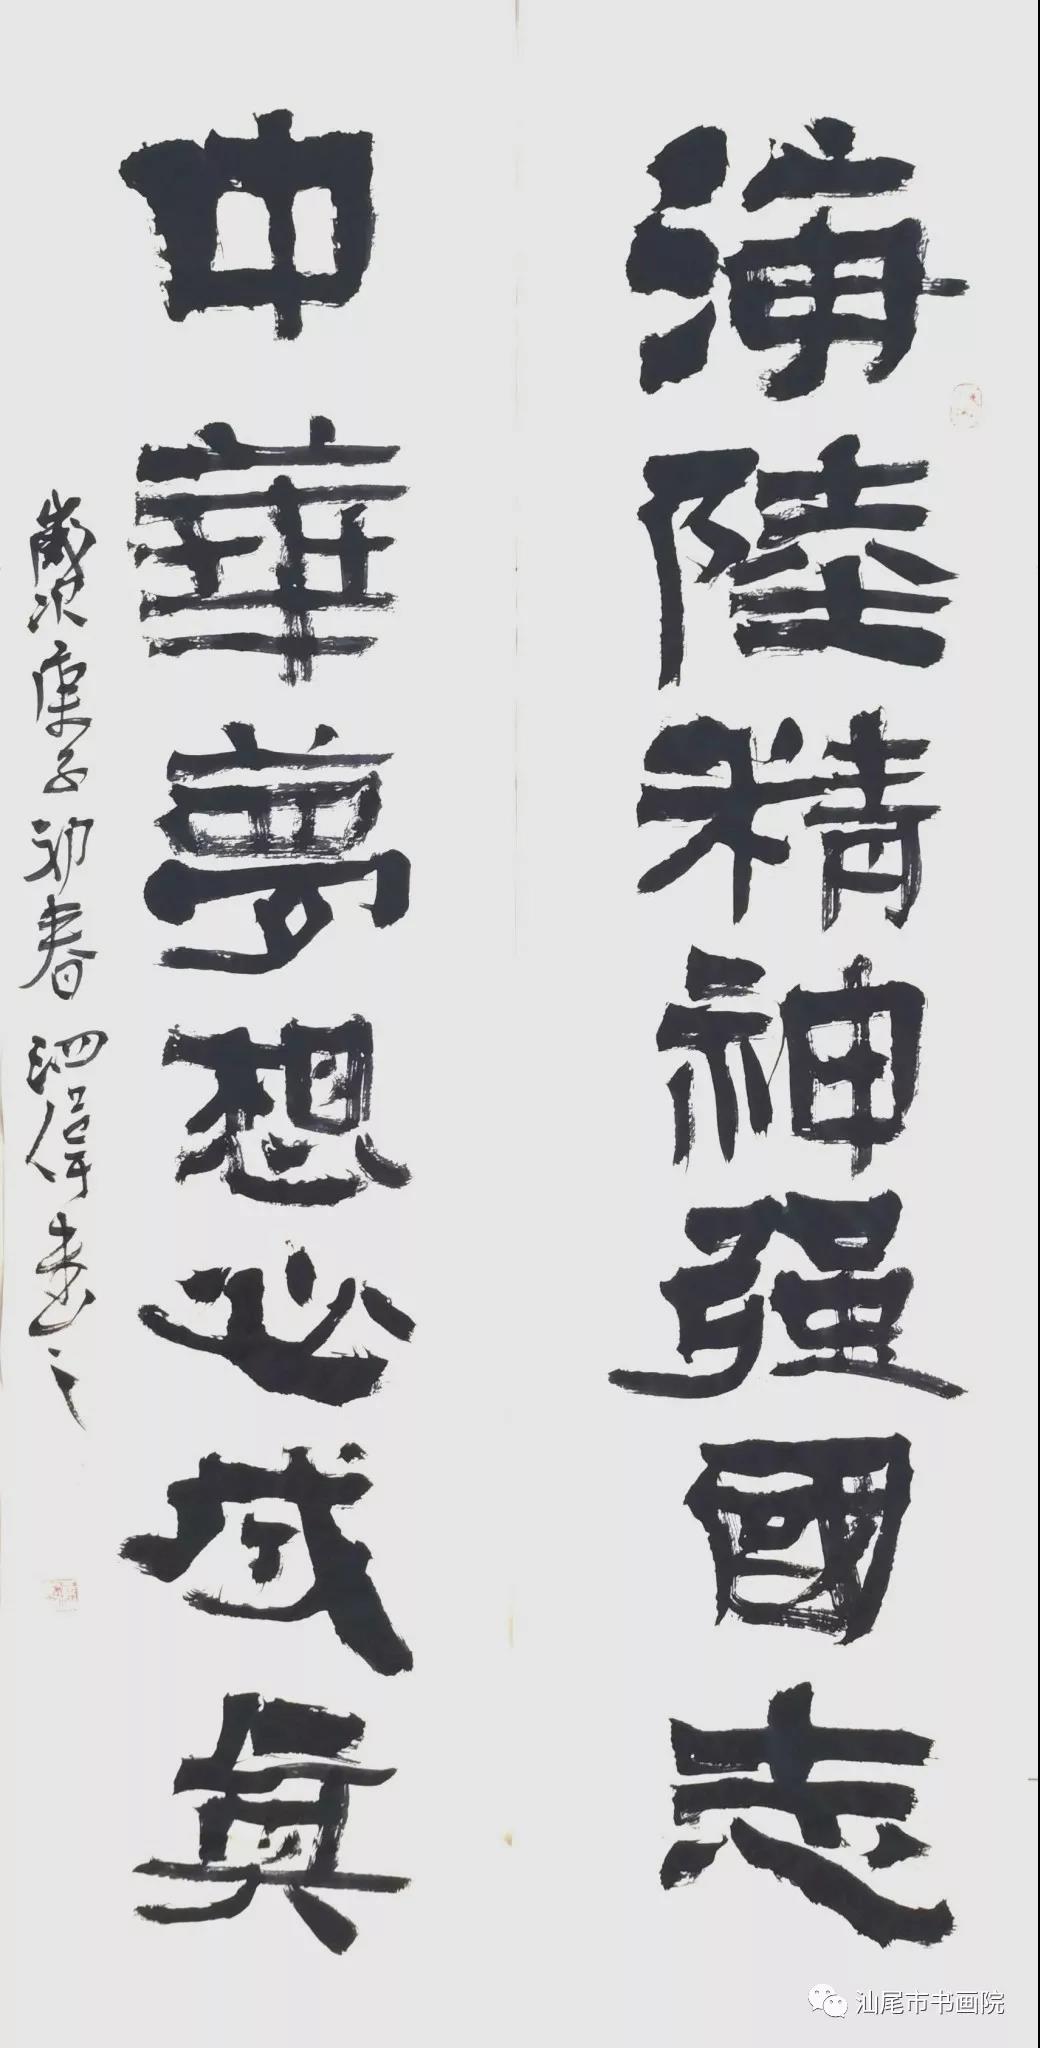 海陸精神强國志
中華夢想必成真
歲次庚子初春泗偉書之
汕尾市书画院